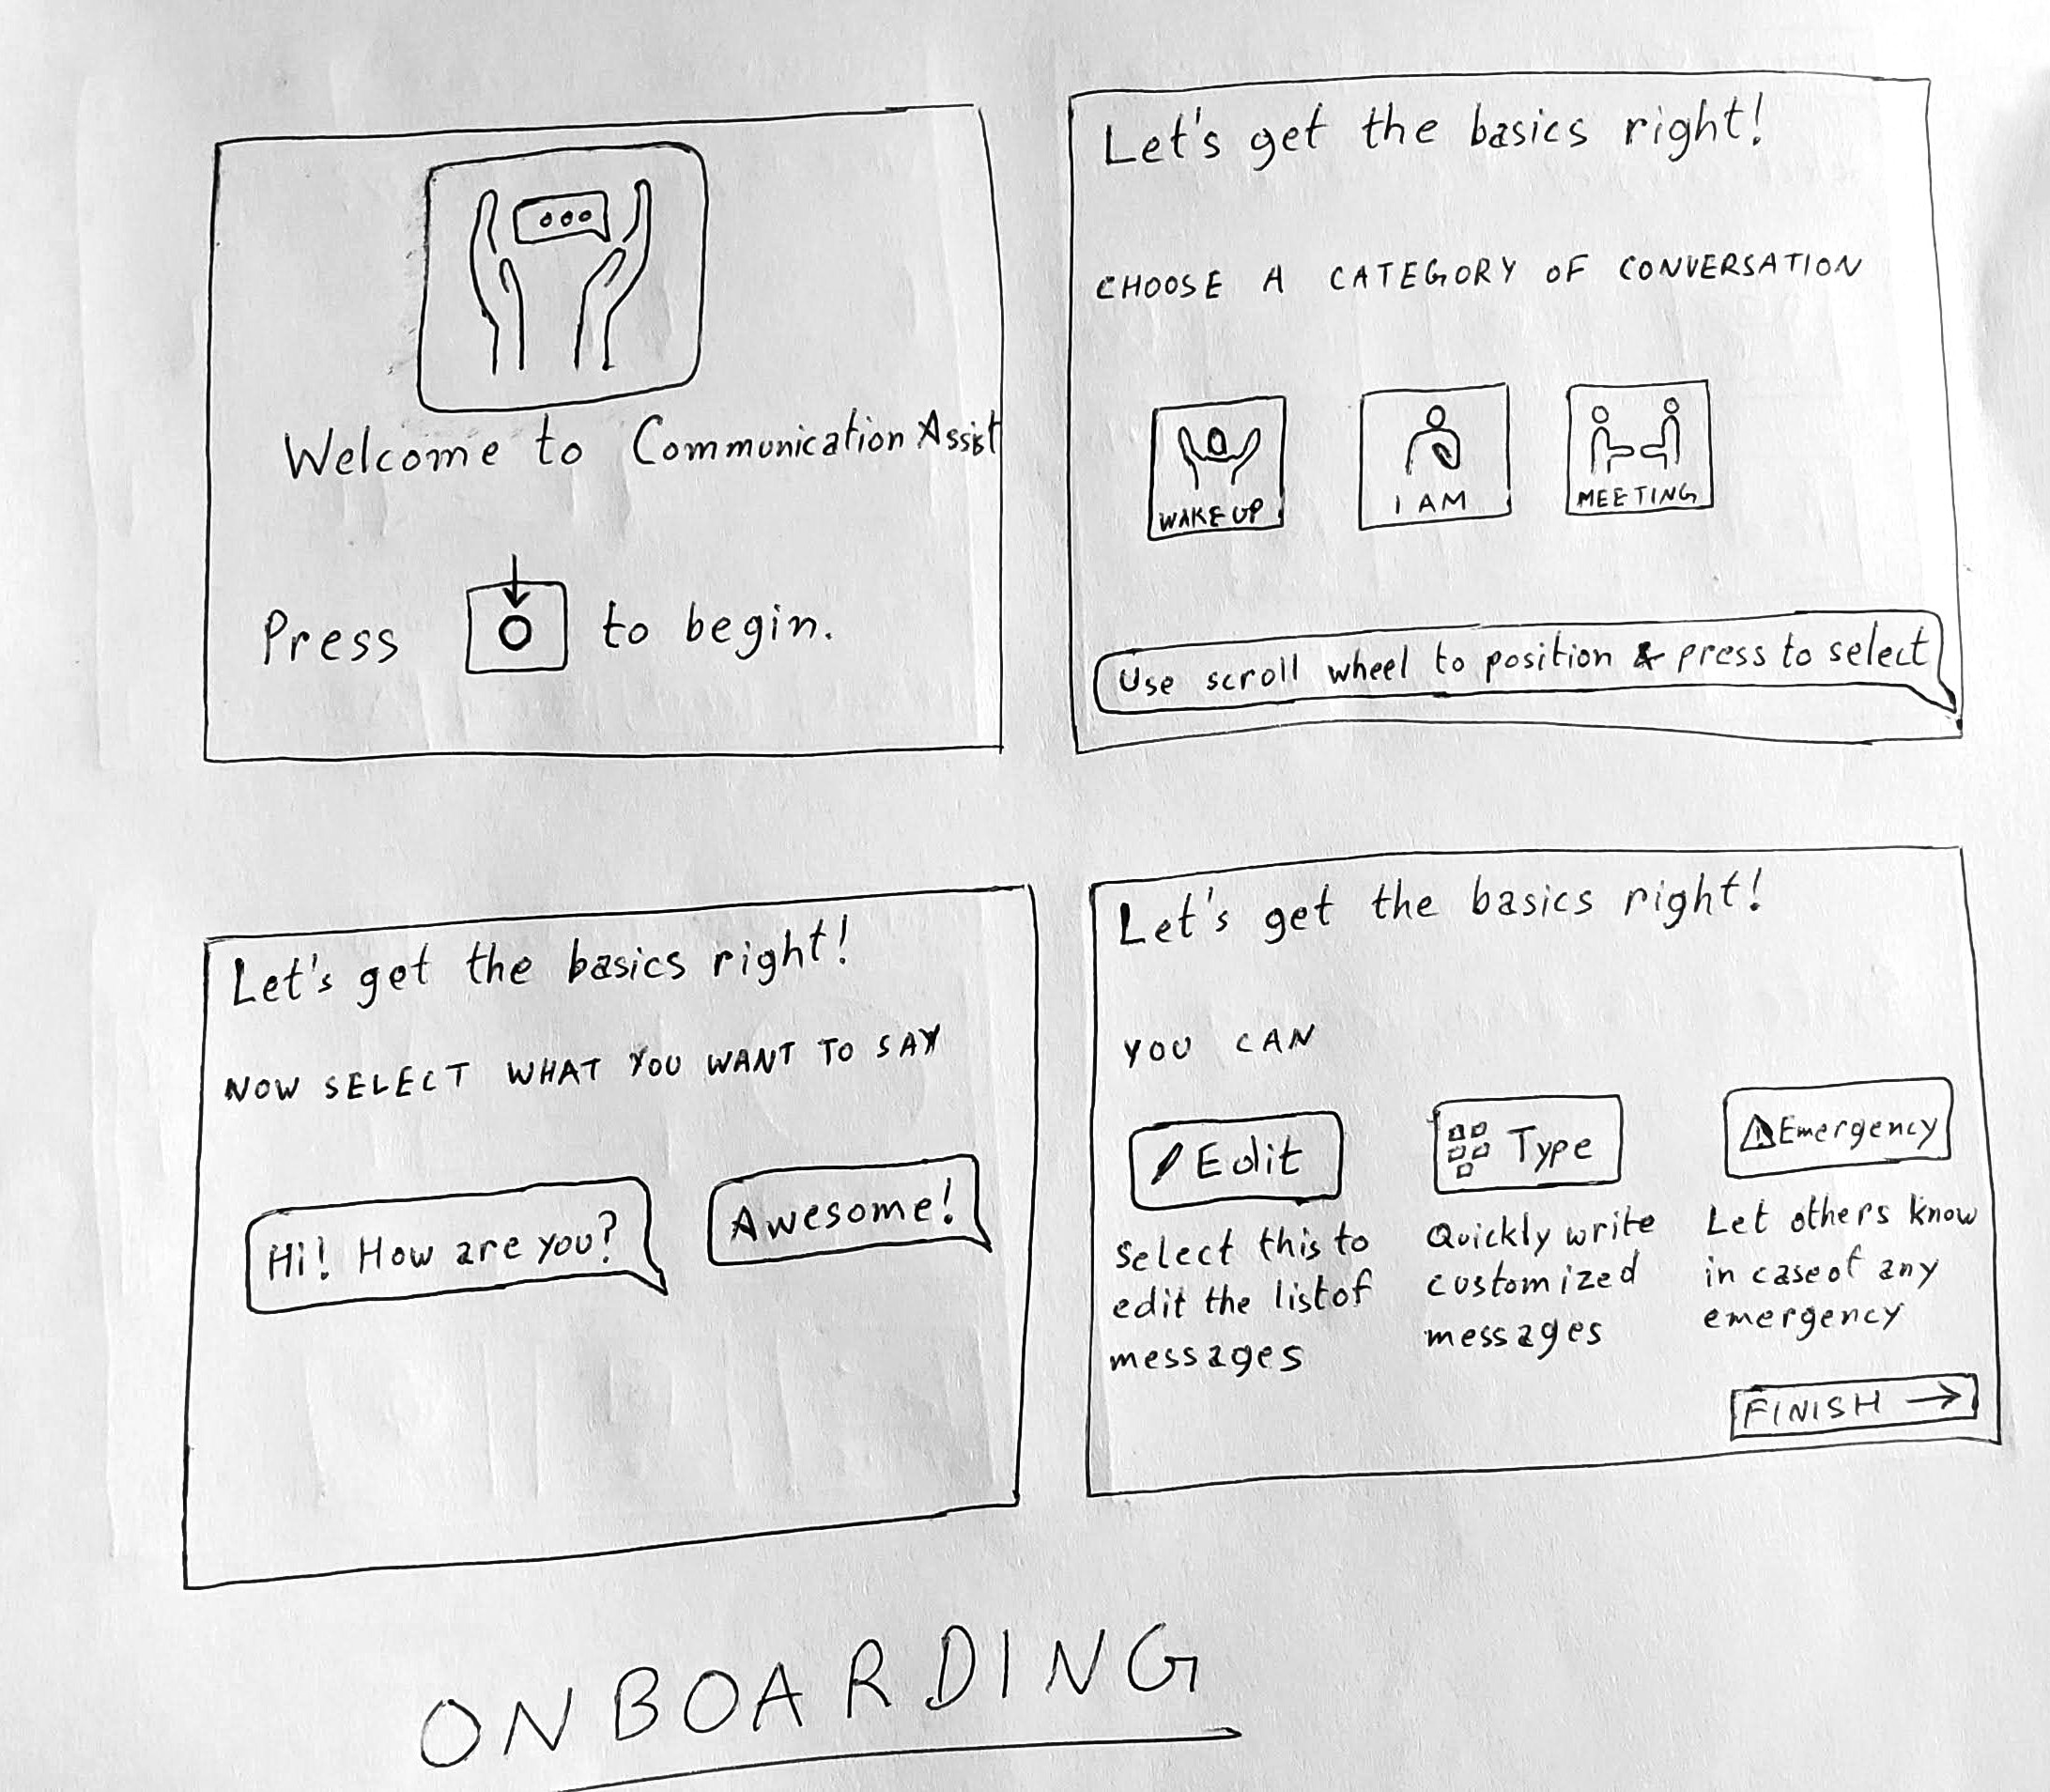 Welcome to Communication Assist
Press to begin.
Let's get the basics right!
CHOOSE A CATEGORY OF CONVERSATION
WAKE UP
I AM
MEETING
Use scroll wheel to position & press to select
Let's get the basics right!
NOW SELECT WHAT YOU WANT TO SAY
Hi! How are you?
Awesome!
Let's get the basics right!
YOU CAN
Edit
Select this to
edit the list of
messages
Type
Quickly write
customized
messages
Emergency
Let others know
in case of any
emergency
FINISH →
ONBOARDING